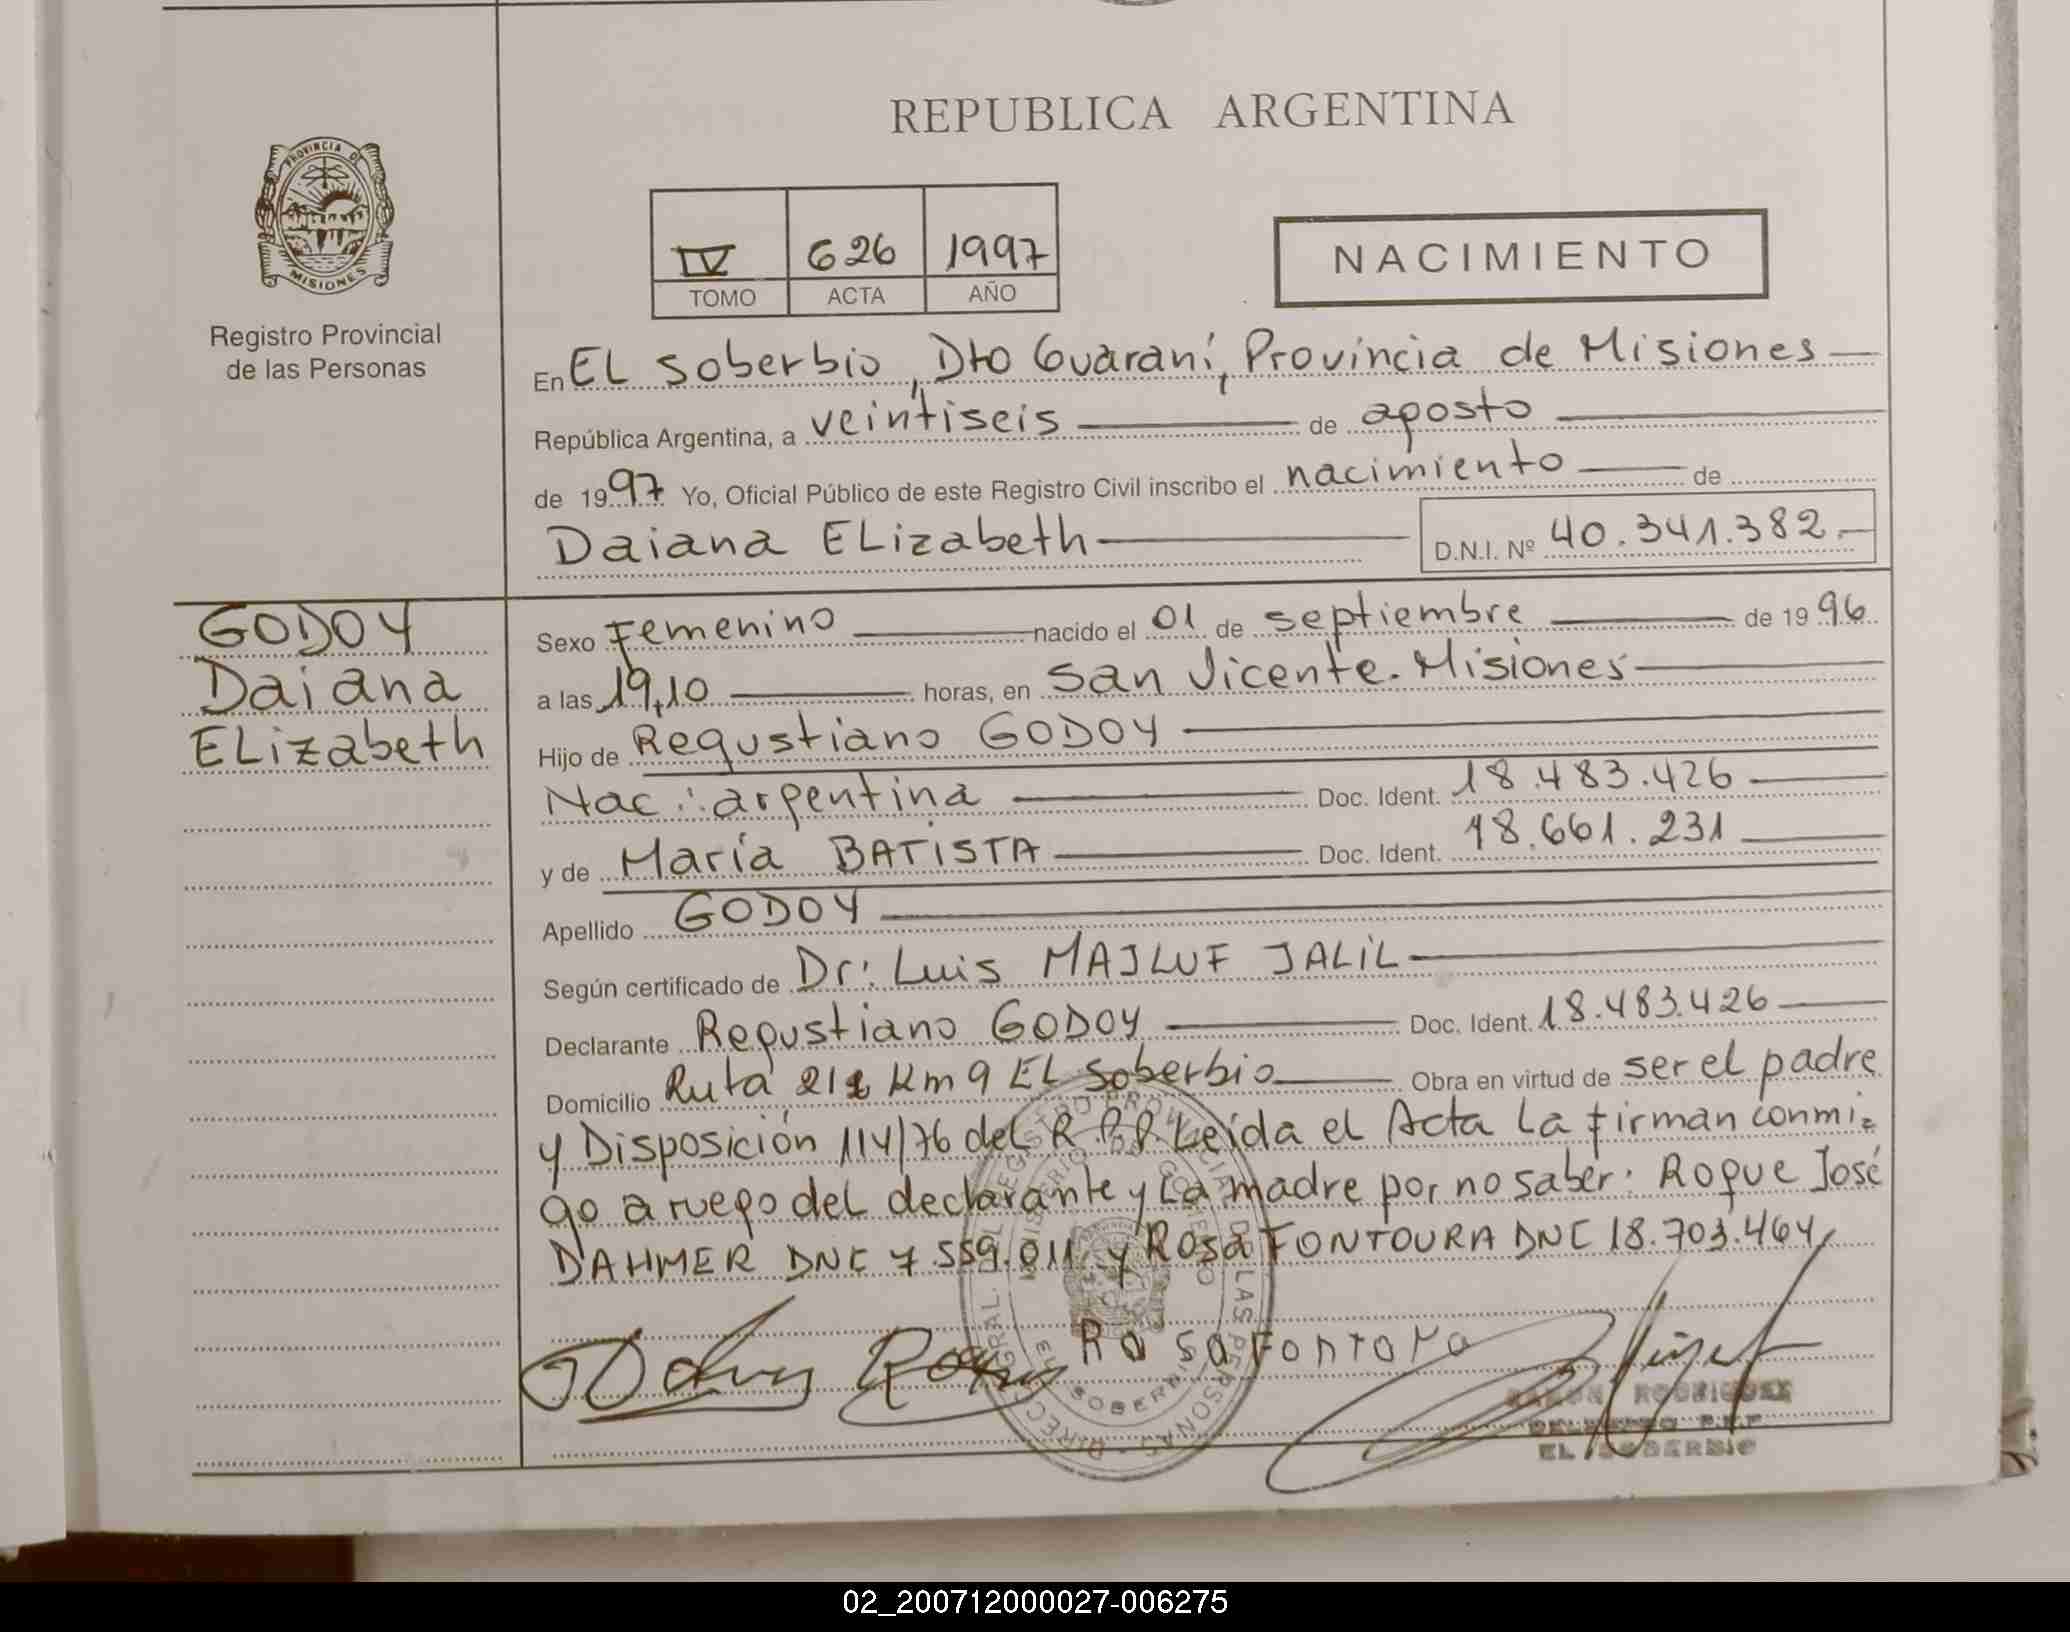 REPUBLICA ARGENTINA
PROVINCIA DE
MISIONES
Registro Provincial
de las Personas
IV 626 1997
TOMO ACTA AÑO
NACIMIENTO
En EL Soberbio, Dto Guaraní, Provincia de Misiones
República Argentina, a veintiseis de agosto
de 1997 Yo, Oficial Público de este Registro Civil inscribo el nacimiento de
Daiana ELizabeth D.N.I. Nº 40.341.382.-
GODOY
Daiana
ELizabeth
Sexo Femenino nacido el 01 de septiembre de 1996
a las 19,10 horas, en San Vicente. Misiones
Hijo de Regustiano GODOY
Nac.: argentina Doc. Ident. 18.483.426
y de María BATISTA Doc. Ident. 18.661.231
Apellido GODOY
Según certificado de Dr: Luis MAJLUF JALIL
Declarante Regustiano GODOY Doc. Ident. 18.483.426
Domicilio Ruta Km 9 EL Soberbio Obra en virtud de ser el padre
y Disposición 114/76 del R.P.P. Leída el Acta La firman conmi=
go a ruego del declarante y La madre por no saber: Roque José
DAHMER DNI 7.559.011 y Rosa FONTOURA DNI 18.703.464
Rosa Fontora
RAMON RODRIGUEZ
EL SOBERBIO
02_200712000027-006275